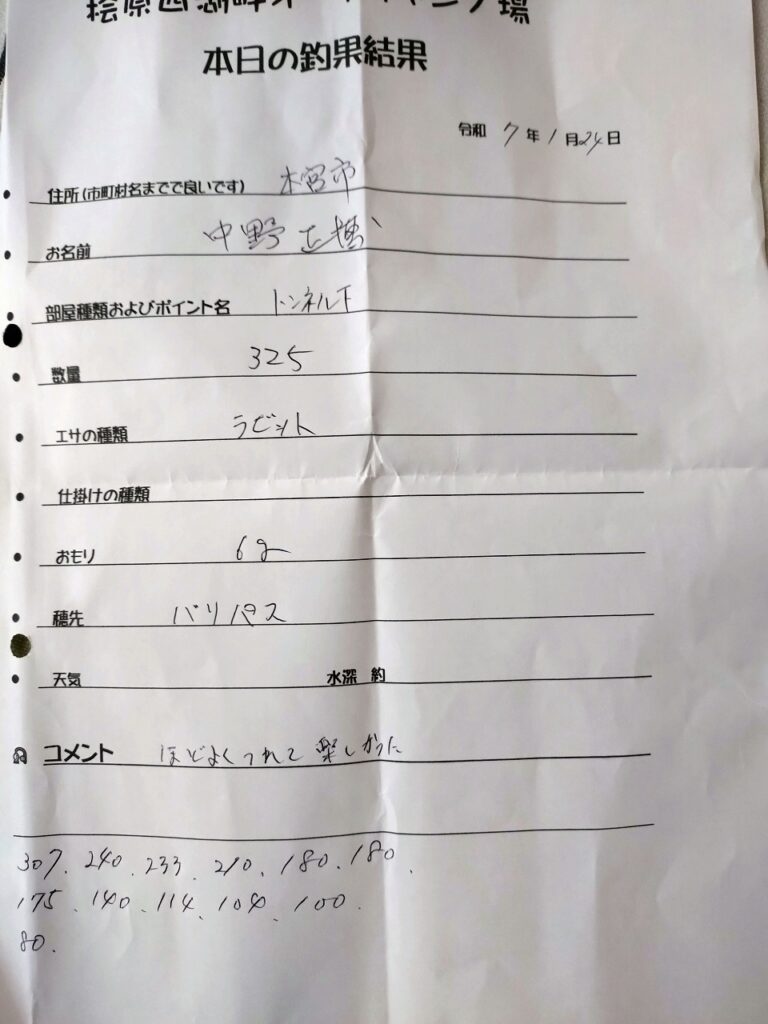 桧原西湖畔オートキャンプ場
本日の釣果結果
令和 7年1月24日
住所(市町村名までで良いです) 本宮市
お名前 中野
部屋種類およびポイント名 トンネル下
数量 325
エサの種類 ラビット
仕掛けの種類
おもり 6g
穂先 バリバス
天気 水深 約
コメント ほどよくつれて楽しかった
307. 240. 233. 210. 180. 180.
175. 140. 114. 104. 100.
80.